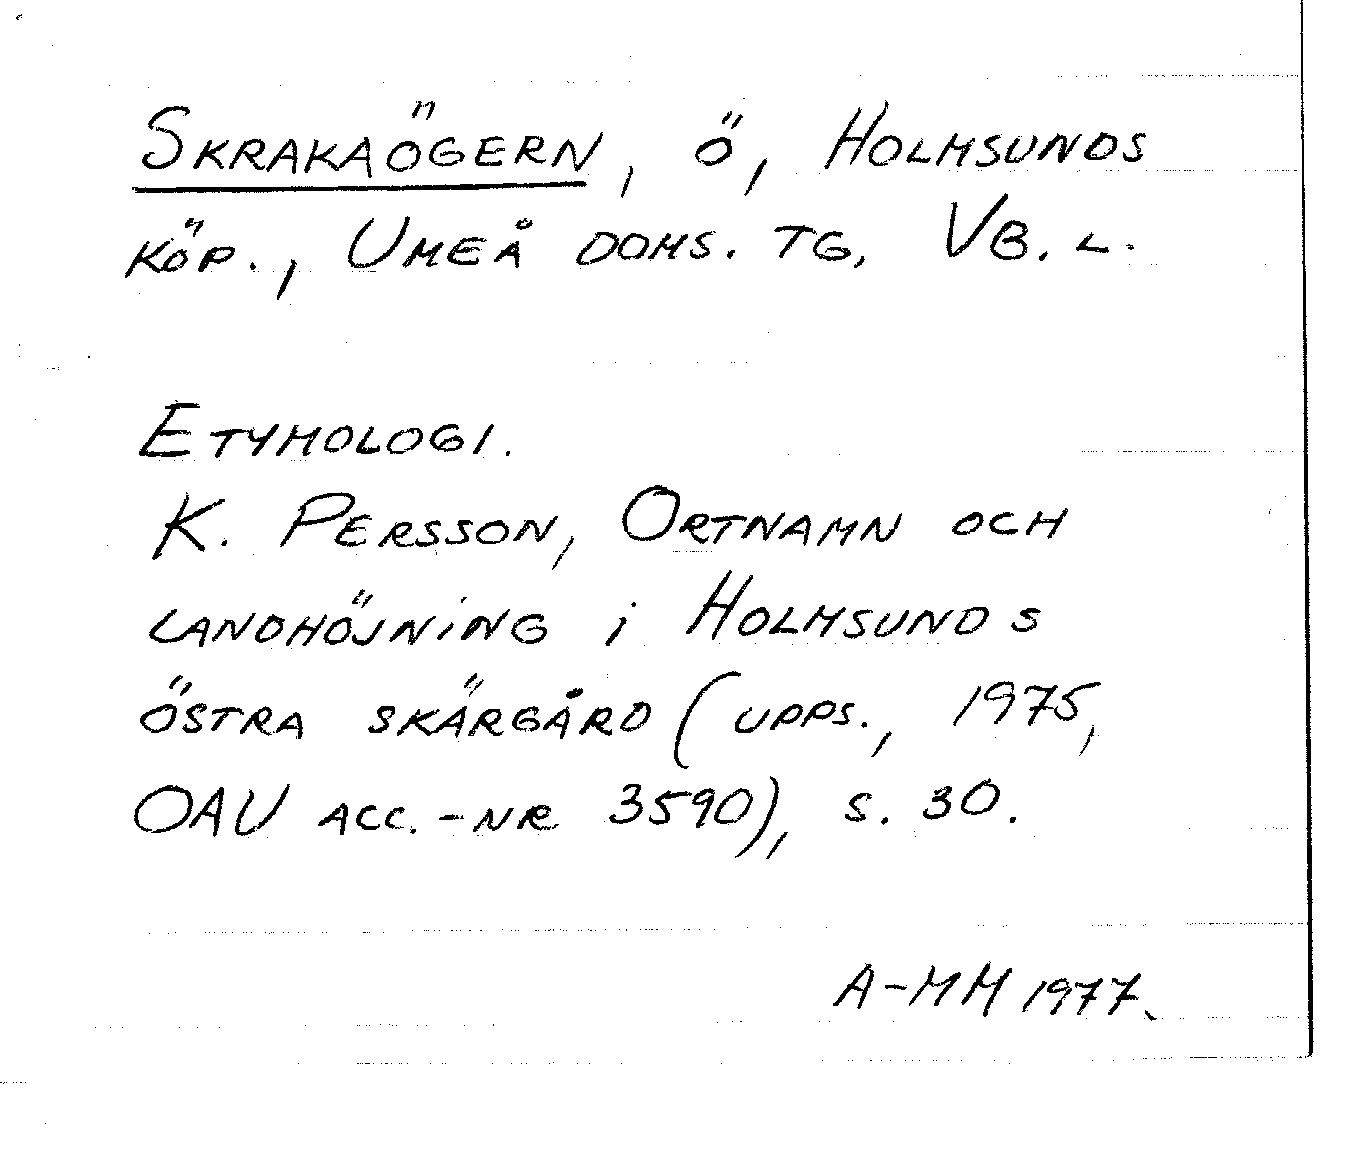 SKRAKAÖGERN, Ö, HOLMSUNDS
KÖP., UMEÅ DOMS. TG, VB. L.
ETYMOLOGI.
K. PERSSON, ORTNAMN OCH
LANDHÖJNING i HOLMSUNDS
ÖSTRA SKÄRGÅRD (UPPS., 1975,
OAU ACC.-NR 3590), S. 30.
A-MM 1977.